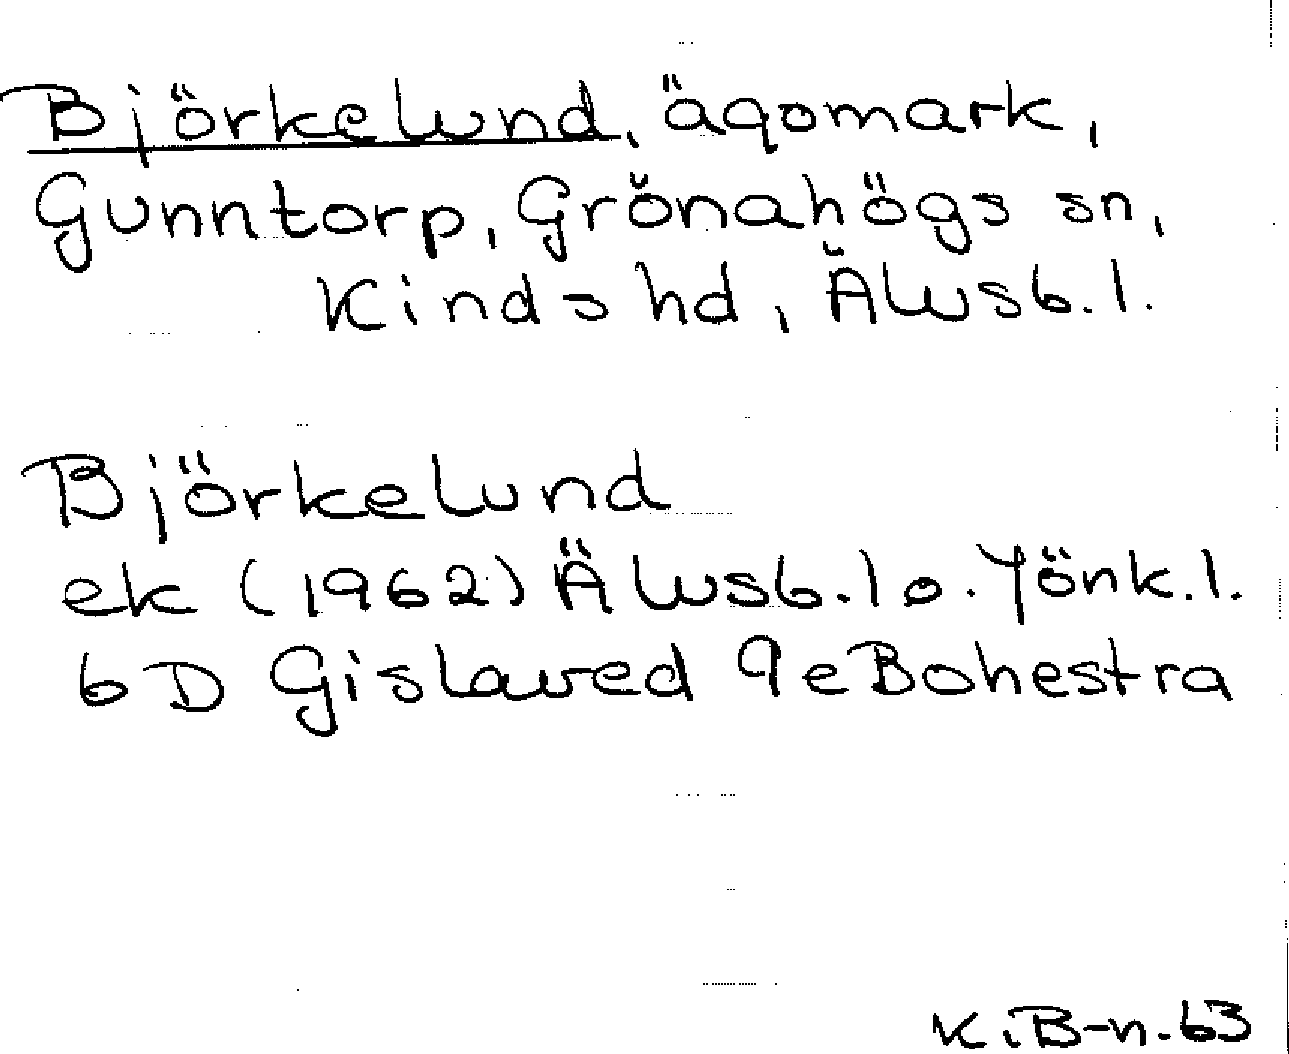 Björkelund, ägomark,
Gunntorp, Grönahögs sn,
Kinds hd, Älvsb. l.
Björkelund
ek (1962) Älvsb. l o. Jönk. l.
6D Gislaved 9e Bohestra
K. B-n. 63